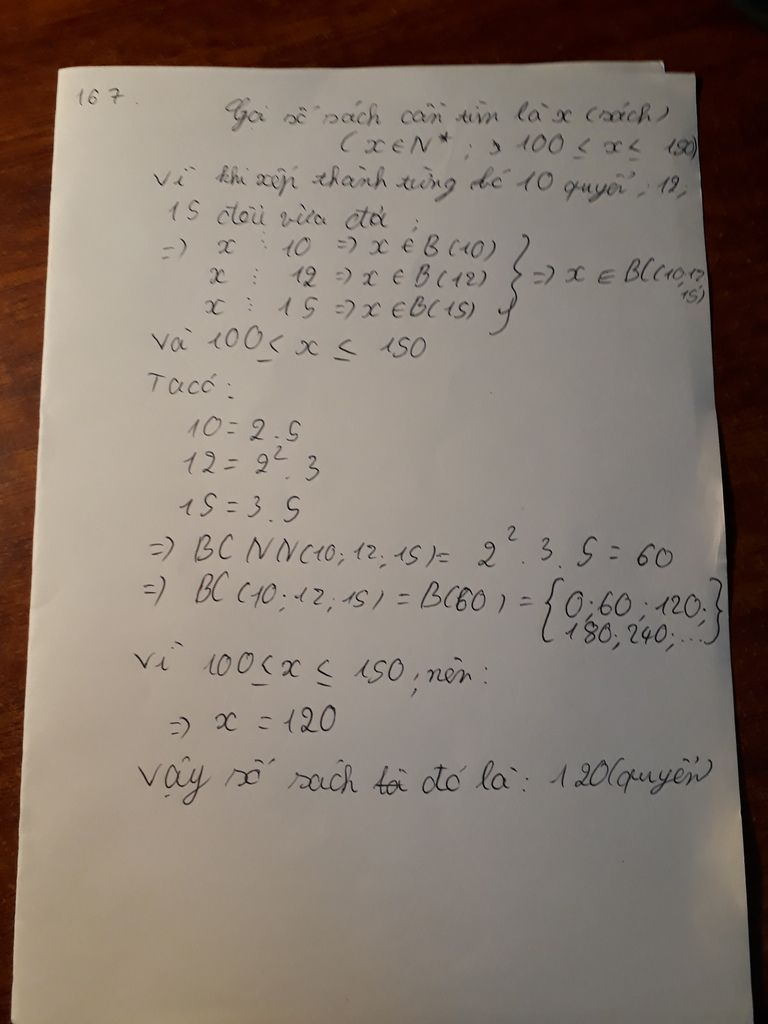 167.
Gọi số sách cần tìm là x (sách)
(x ∈ N*; 100 ≤ x ≤ 150)
Vì khi xếp thành từng bó 10 quyển; 12;
15 đều vừa đủ;
=> x ⋮ 10 => x ∈ B(10)
x ⋮ 12 => x ∈ B(12) } => x ∈ BC(10;12;
15)
x ⋮ 15 => x ∈ B(15)
Và 100 ≤ x ≤ 150
Ta có:
10 = 2.5
12 = 2².3
15 = 3.5
=> BCNN(10;12;15) = 2².3.5 = 60
=> BC(10;12;15) = B(60) = {0;60;120;
180;240;...}
Vì 100 ≤ x ≤ 150, nên:
=> x = 120
Vậy số sách đó là: 120 (quyển)